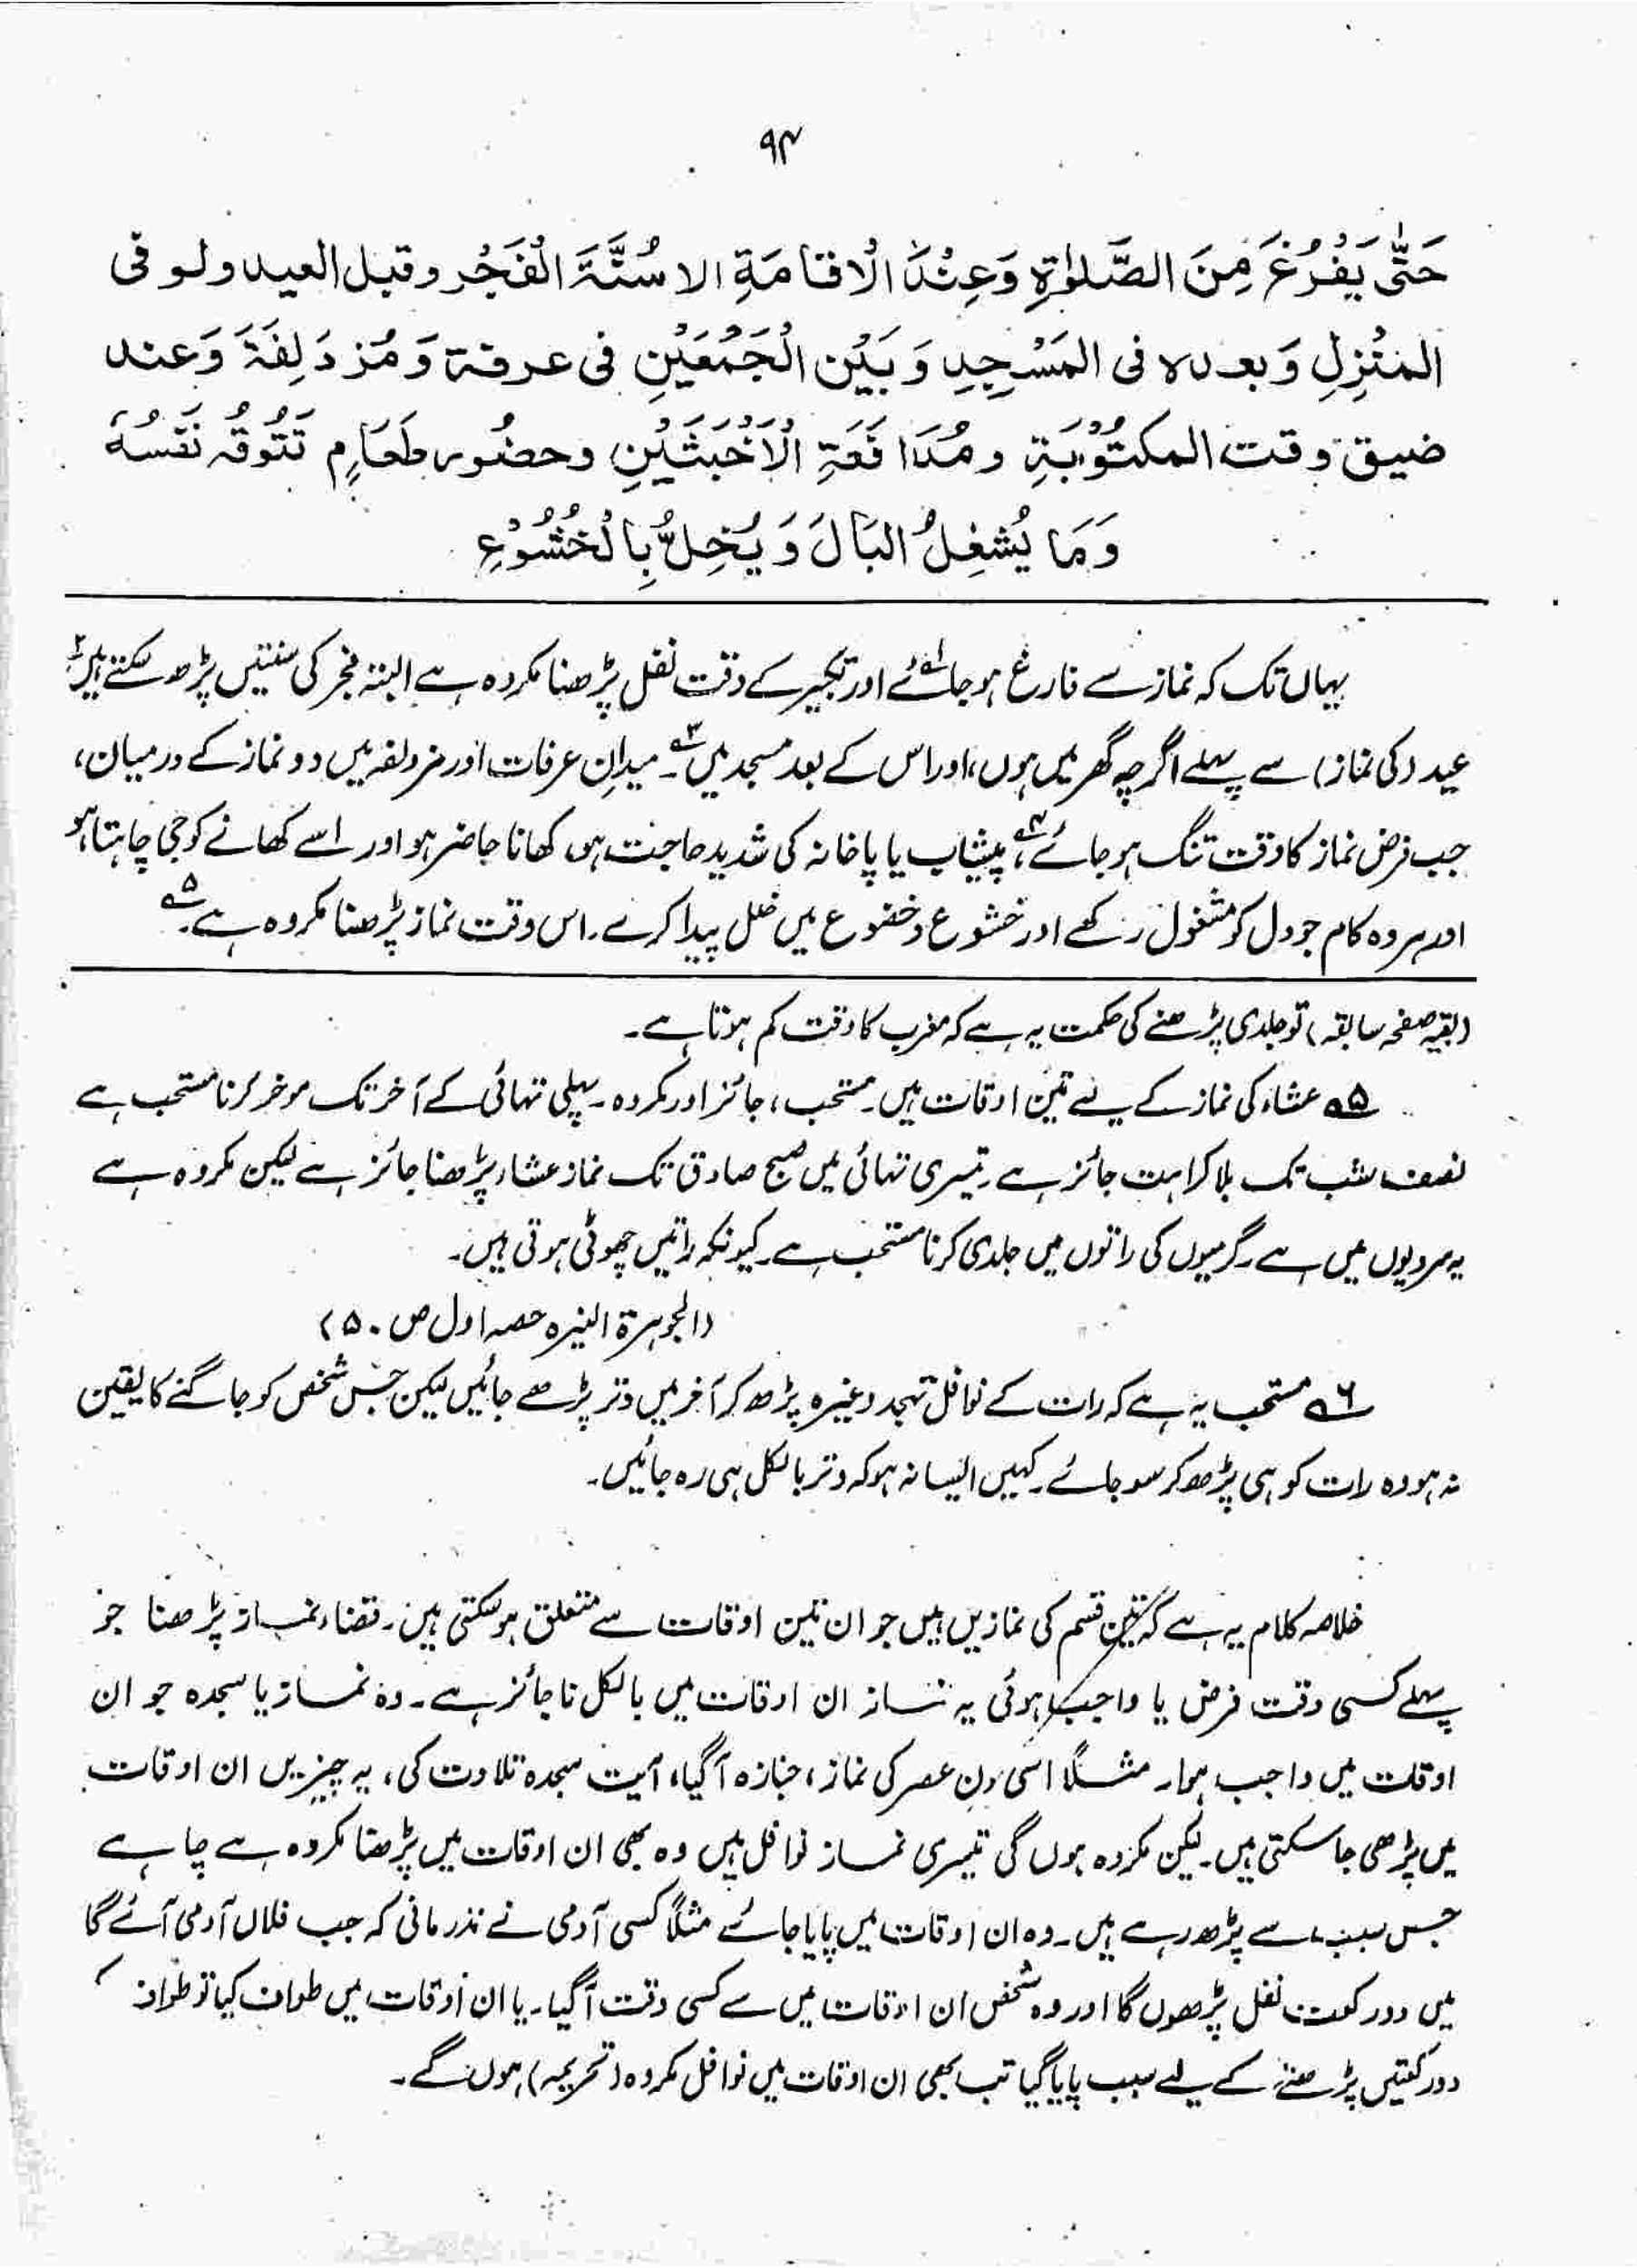 ۹۴
حَتّٰى يَفْرُغَ مِنَ الصَّلٰوةِ وَعِنْدَ الْاقامَةِ الا سُنَّةَ الْفَجْرِ وقبل العيد ولو فى
المنْزِلِ وَبعدہ فى المَسْجِدِ وَبَيْن الْجَمْعَيْنِ فى عرفة وَمُزدَلِفَةَ وَعند
ضيق وقت المكتُوْبَةِ ومُدَافَعَةِ الْاَخْبَثَيْنِ وحضُور طَعَامٍ تَتُوقُه نَفْسُهُ
وَمَا يُشغِلُ البَالَ وَيُخِلُّ بِالْخُشُوْعِ
یہاں تک کہ نماز سے فارغ ہو جائے۱؎ اور تکبیر کے وقت نفل پڑھنا مکروہ ہے البتہ فجر کی سنتیں پڑھ سکتے ہیں۲؎
عید (کی نماز) سے پہلے اگرچہ گھر میں ہوں، اور اس کے بعد مسجد میں۳؎۔ میدانِ عرفات اور مزدلفہ میں دو نماز کے درمیان،
جب فرض نماز کا وقت تنگ ہو جائے۴؎، پیشاب یا پاخانہ کی شدید حاجت ہو، کھانا حاضر ہو اور اسے کھانے کو جی چاہتا ہو
اور ہر وہ کام جو دل کو مشغول رکھے اور خشوع و خضوع میں خلل پیدا کرے۔ اس وقت نماز پڑھنا مکروہ ہے۔۵؎
(بقیہ صفحہ سابقہ) تو جلدی پڑھنے کی حکمت یہ ہے کہ مغرب کا وقت کم ہوتا ہے۔
۵؎ عشاء کی نماز کے لیے تین اوقات ہیں۔ مستحب، جائز اور مکروہ۔ پہلی تہائی کے آخر تک موخر کرنا مستحب ہے
نصف شب تک بلا کراہت جائز ہے۔ تیسری تہائی میں صبح صادق تک نماز عشاء پڑھنا جائز ہے لیکن مکروہ ہے
یہ سردیوں میں ہے۔ گرمیوں کی راتوں میں جلدی کرنا مستحب ہے۔ کیونکہ راتیں چھوٹی ہوتی ہیں۔
(الجوہرۃ النیرہ حصہ اول ص ۵۰)
۶؎ مستحب یہ ہے کہ رات کے نوافل تہجد وغیرہ پڑھ کر آخر میں وتر پڑھے جائیں لیکن جس شخص کو جاگنے کا یقین
نہ ہو وہ رات کو ہی پڑھ کر سو جائے۔ کہیں ایسا نہ ہو کہ وتر بالکل ہی رہ جائیں۔
خلاصہ کلام یہ ہے کہ تین قسم کی نمازیں ہیں جو ان تین اوقات سے متعلق ہو سکتی ہیں۔ قضاء نماز پڑھنا جو
پہلے کسی وقت فرض یا واجب ہوئی یہ نماز ان اوقات میں بالکل ناجائز ہے۔ وہ نماز یا سجدہ جو ان
اوقات میں واجب ہوا۔ مثلاً اسی دن عصر کی نماز، جنازہ آگیا، آیت سجدہ تلاوت کی، یہ چیزیں ان اوقات
میں پڑھی جا سکتی ہیں۔ لیکن مکروہ ہوں گی تیسری نماز نوافل ہیں وہ بھی ان اوقات میں پڑھنا مکروہ ہے چاہے
جس سبب سے پڑھ رہے ہیں۔ وہ ان اوقات میں پایا جائے مثلاً کسی آدمی نے نذر مانی کہ جب فلاں آدمی آئے گا
میں دو رکعت نفل پڑھوں گا اور وہ شخص ان اوقات میں سے کسی وقت آگیا۔ یا ان اوقات میں طواف کیا تو طواف
دو رکعتیں پڑھنے کے لیے سبب پایا گیا تب بھی ان اوقات میں نوافل مکروہ (تحریمہ) ہوں گے۔